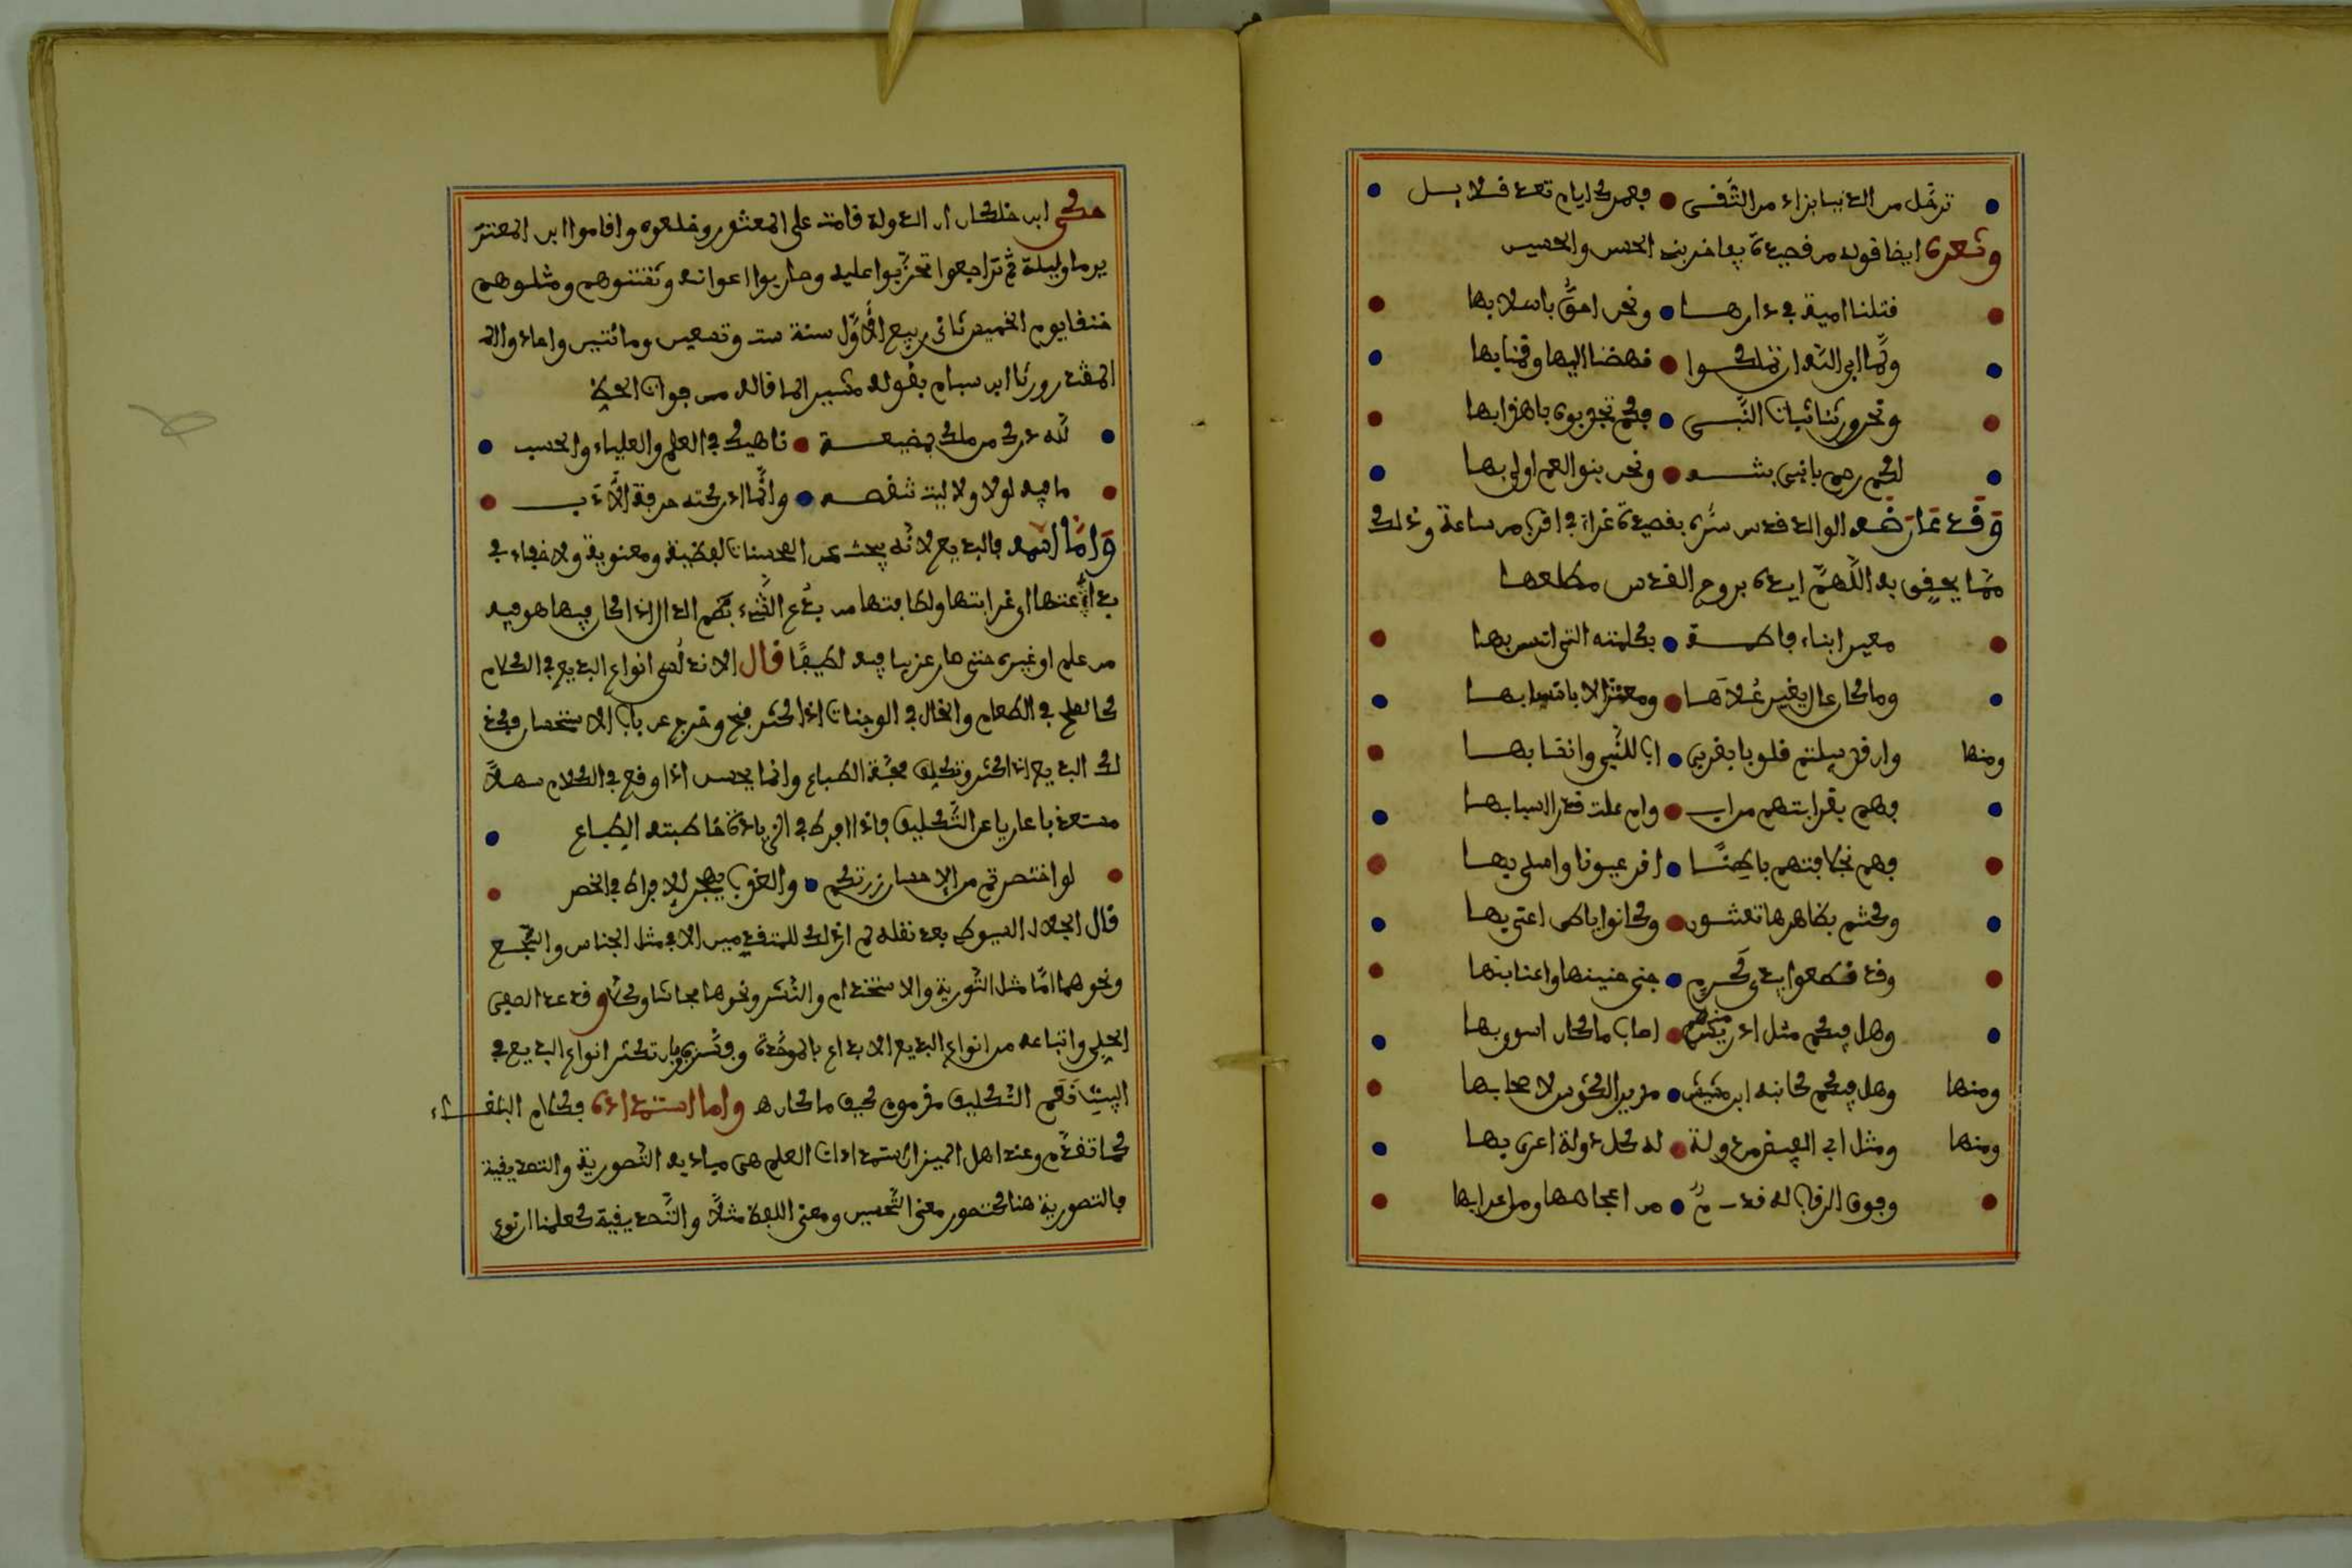 ترحل من الدنيا بزاد من التقى • فعمرك ايام تعد قلايل
وتعدى ايضا قوله من قصيدة يفاخر بني الحسن والحسين
قتلنا امية في دارها • ونحن احق باسلابها
ولما ابى الله ان تملكوا • نهضنا اليها وقمنا بها
ونحن ورثنا ثياب النبي • فكم تجذبون باهدابها
لكم رحم يا بني بنته • ونحن بنو العم اولى بها
وقد عارضه الوالد قدس سره بقصيدة غراء في اقرب من ساعة وذلك
مما يحقق به اللهم ايده بروح القدس مطلعها
معير ابناء فاطمة • بكلمته التي انس بها
وما كان عار يغير علاها • ومعتز الا بانتسابها
ومنها وان قد سلبتم قلوبا بقربى • اب للنبي وانقابها
فهم بقرابتهم من اب • وام علت قدر انسابها
فهم نجلا بنتهم باطنا • اقر عيونا واسلى بها
وكنتم بظاهرها تعتنون • وكانوا بباطن اعنى بها
وقد قطعوا يدي كرم • جنى جنينها واعنابها
وهل فيكم مثل ادريسهم • اصاب ما كان اسوى بها
ومنها وهل فيكم كابنه ابن مشيش • مدير الكؤوس لاصحابها
ومنها ومثل ابي الفيض من دولة • له كل دولة اعزى بها
وفوق الرقاب له قدم • من اعجامها ومن اعرابها
حكى ابن خلكان ان الدولة قامت على المقتدر وخلعوه واقاموا ابن المعتز
يوما وليلة ثم تراجعوا تحزبوا عليه وحاربوا اعوانه وشتتوهم وقتلوهم
خنقا يوم الخميس ثاني ربيع الاول سنة ست وتسعين ومائتين واعادوا الى
المقتدر ورثاه ابن بسام بقوله مشيرا لما قاله من جوان الحرفة
لله درك من ملك بمضيعة • ناهيك في العلم والعلياء والحسب
ما فيه لولا ولا ليت تنقصه • وانما ادركته حرفة الادب
واما اسمه فالبديع لانه يبحث عن المحسنات لفظية ومعنوية ولا خفاء في
بداعتها اي غرابتها ولطافتها من بدع الشيء بضم الدال اذا كان فيها هو فيه
من علم او غيره حتى صار غريبا فيه لطيفا قال الاندلسي انواع البديع في الكلام
كالملح في الطعام والخال في الوجنات اذا كثر قبح وخرج عن باب الاستحسان وكذ
لك البديع اذا كثر وتكلف مجته الطباع وانما يحسن اذا وقع في الكلام سهلا
مستعذبا عاريا عن التكليف فاذا افرط في الزيادة خاطبته الطباع
لو اختصرتم من الاحسان زرتكم • والعذب يهجر للافراط في الخصر
قال الجلال السيوطي بعد نقله ثم ان ذلك للمتقدمين الا في مثل الجناس والسجع
ونحوهما اما مثل التورية والاستخدام والنشر ونحوها مجانا وكلا وقد عد الصفي
الحلي واتباعه من انواع البديع الابداع بالموحدة وفسروه بان تكثر انواع البديع في
البيت نعم التكليف مذموم كيف ما كان ه واما استمداده فكلام البلغاء
كما تقدم وعند اهل الميزان استمدادات العلم هي مباديه التصورية والتصديقية
فالتصورية هنا كتصور معنى التحسين ومعنى اللفظ مثلا والتصديقية كعلمنا ان نوع